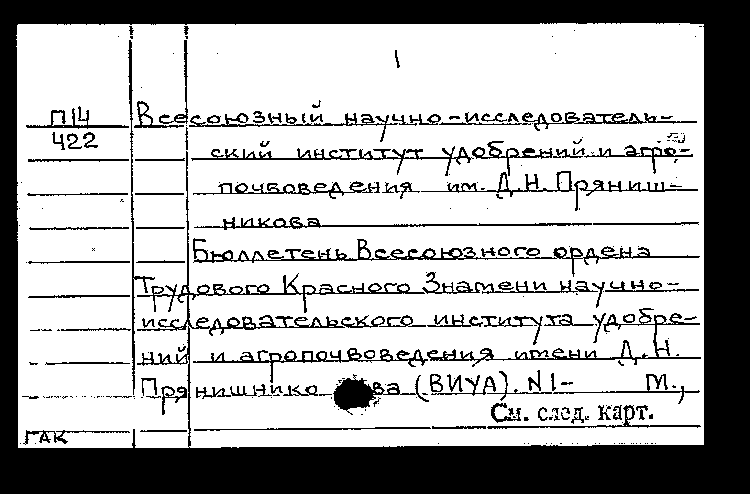 1
П14 Всесоюзный научно-исследователь-
422 ский институт удобрений и агро-
почвоведения им. Д.Н. Пряниш-
никова
Бюллетень Всесоюзного ордена
Трудового Красного Знамени научно-
исследовательского института удобре-
ний и агропочвоведения имени Д.Н.
Прянишнико ва (ВИУА). N1- М.,
См. след. карт.
ГАК